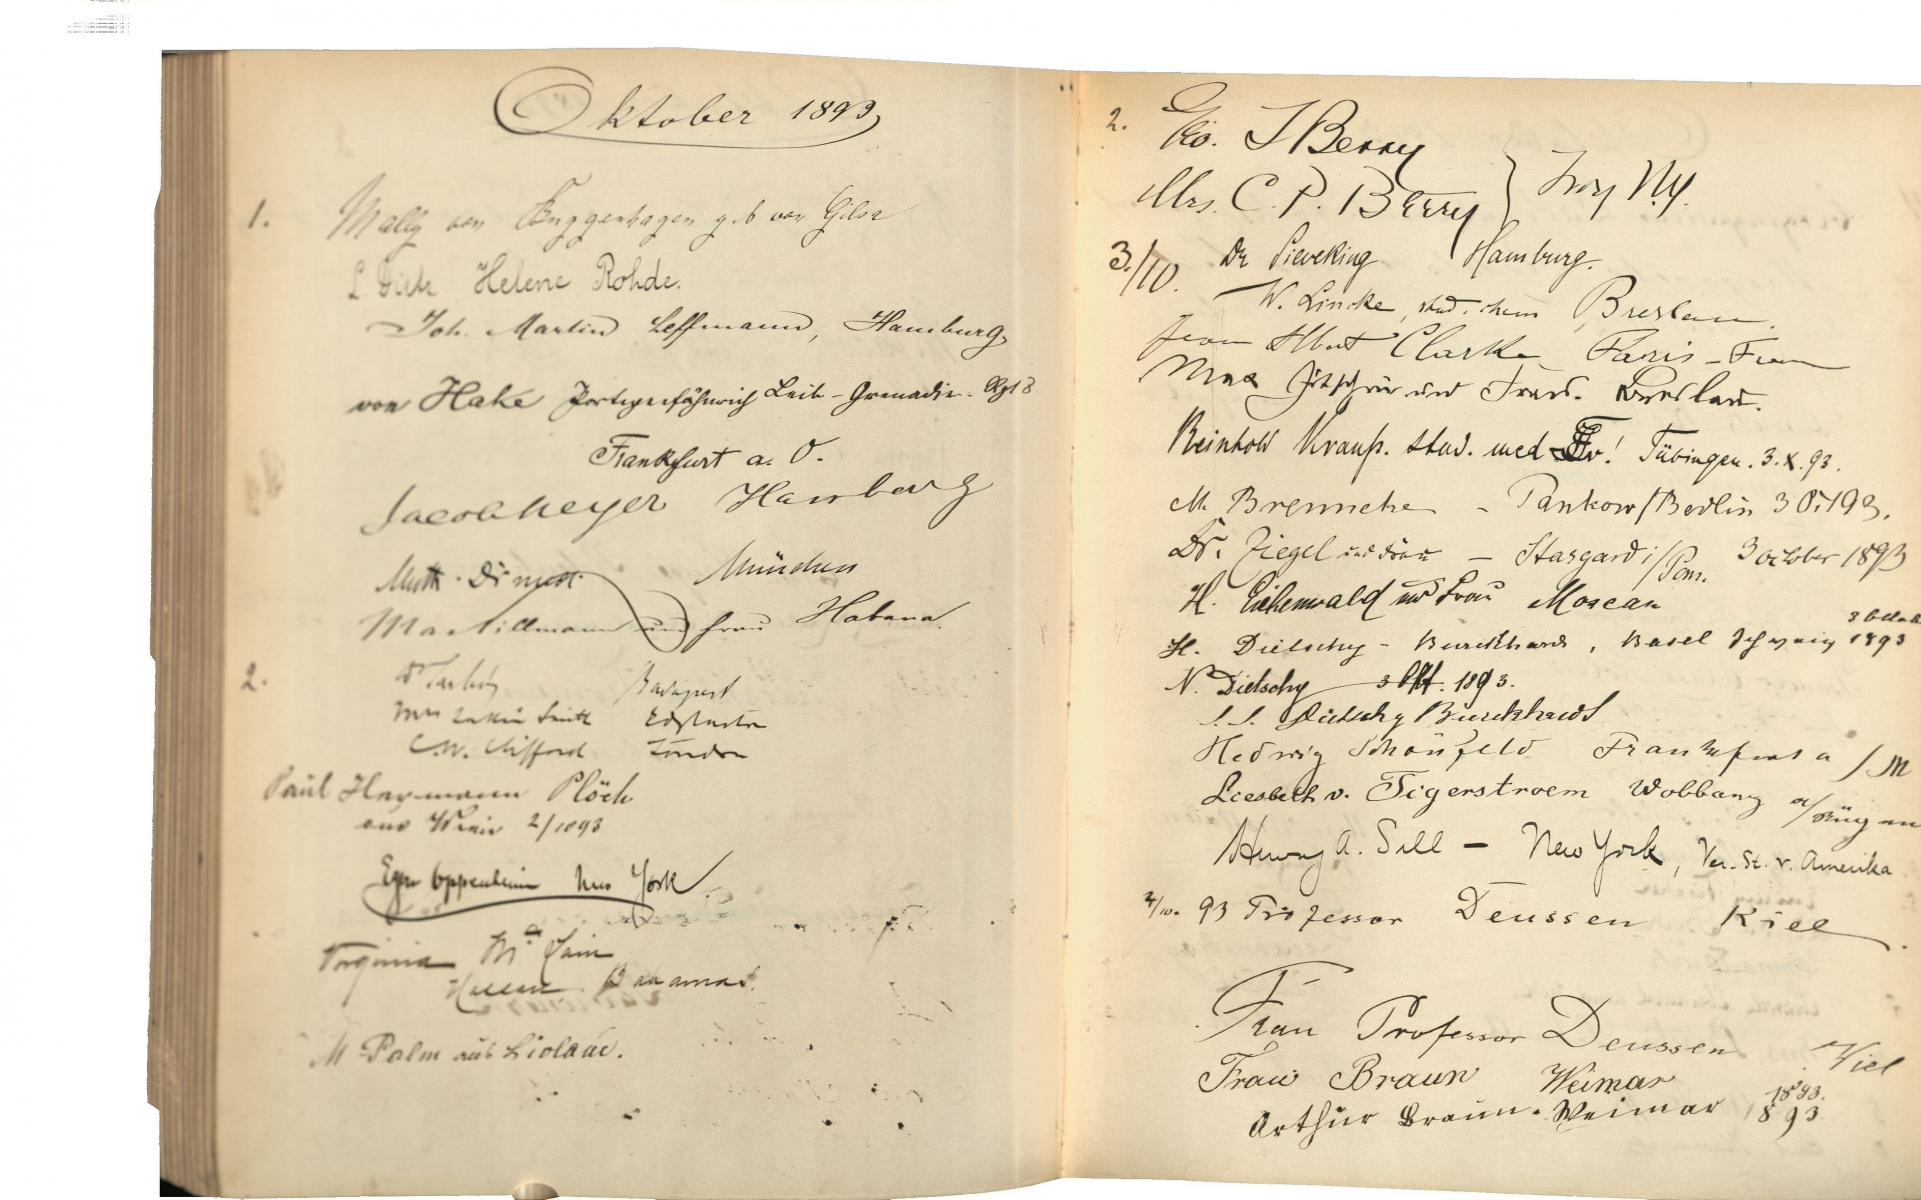 Oktober 1893
1. Mally von Buggenhagen geb von Gilsa
L. Dietz Helene Rohde.
Joh. Martin Leffmann, Hamburg,
von Hake Portepeefähnrich Leib-Grenadier-Rgt 8
Frankfurt a. O.
Jacob Meyer Hamburg
München
und Frau Habana.
2.
Budapest
Mrs Smith
C. W. Clifford London
Paul Haymann Plöch
aus Wien 2/1093
Oppenheim New York
Virginia
Nassau Bahamas.
M Palm aus
2. Geo. T Berry
Mrs. C. P. Berry } Troy N.Y.
3./10. Dr Sieveking Hamburg.
W. Lincke, stud. chem Breslau.
Jean Albert Clarke Paris-
Max und Frau. Breslau.
Reinhold Krauß. stud. med Tübingen. 3. X. 93.
M. Brennecke - Pankow/Berlin 3 Oct 93.
Dr. Ziegel und Frau - Stargard i/Pom. 3 October 1893
H. Eichenwald und Frau Moscau
H. Dietschy - Burckhardt, Basel Schweiz 3 October 1893
N. Dietschy 3 Okt. 1893.
Dietschy Burckhardt
Hedwig Schönfeld Frankfurt a/M
Liesbeth v. Tigerstroem Wobbanz a/Rügen
Henry A. Sill - New York, Ver. St. v. Amerika
4/10. 93 Professor Deussen Kiel.
Frau Professor Deussen Kiel
Frau Braun Weimar 1893.
Arthur Braun. Weimar 1893